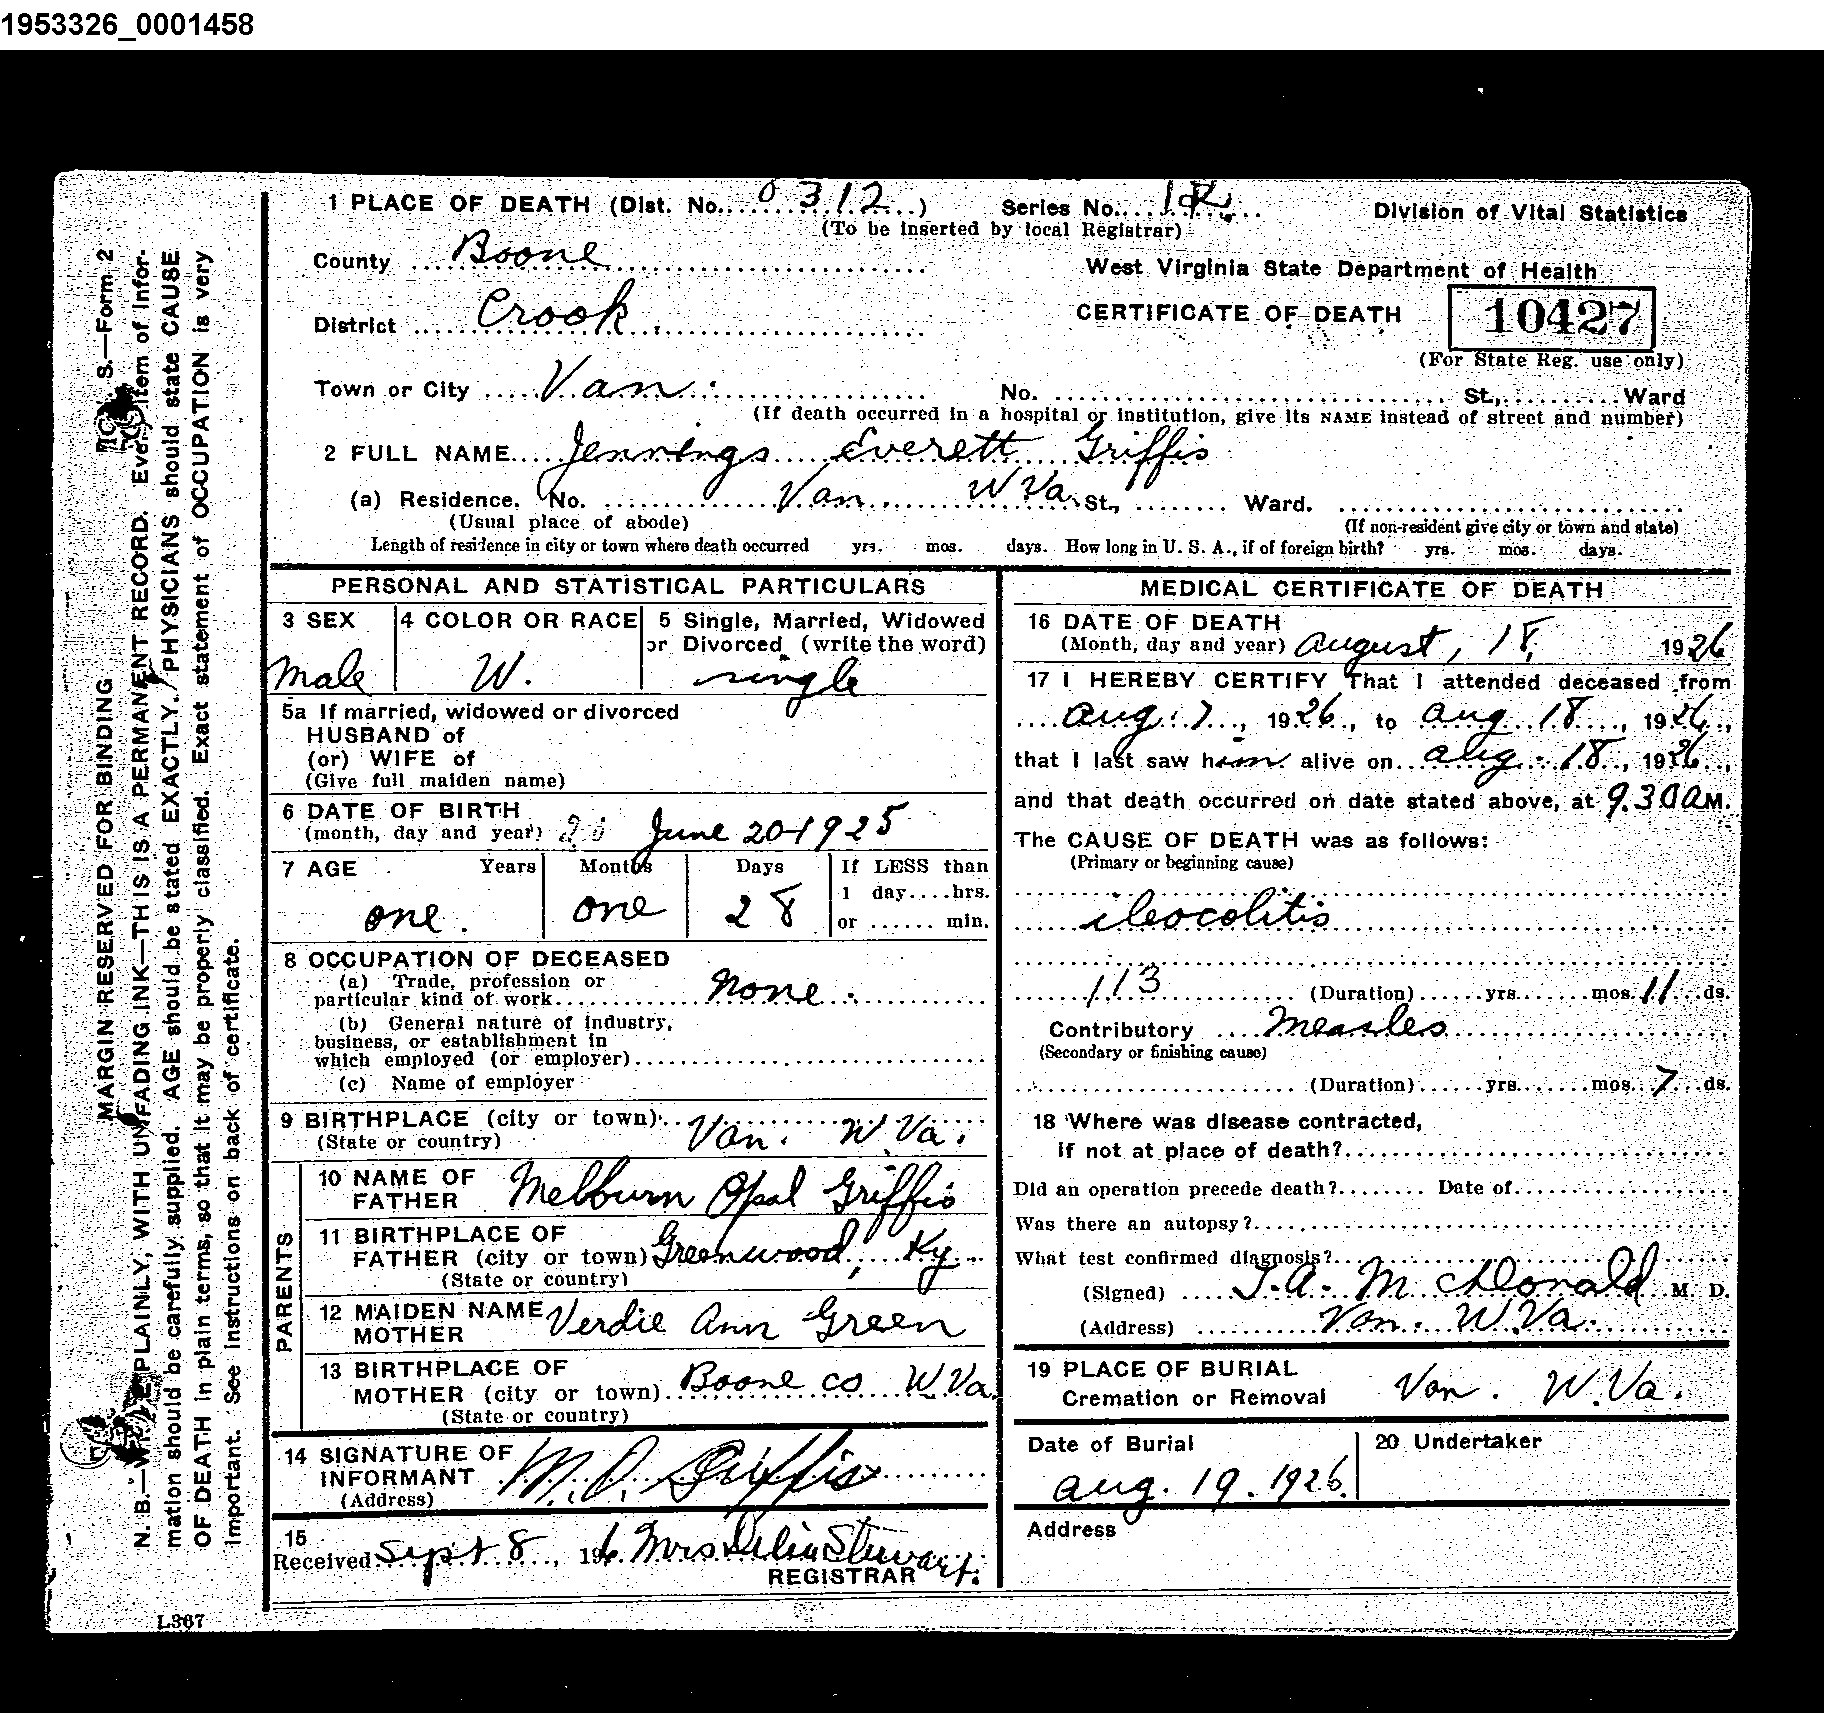 1953326_0001458
1 PLACE OF DEATH (Dist. No. 0312) Series No. Division of Vital Statistics
(To be inserted by local Registrar)
County Boone West Virginia State Department of Health
District Crook CERTIFICATE OF DEATH 10427
(For State Reg. use only)
Town or City Van. No. St., Ward
(If death occurred in a hospital or institution, give its NAME instead of street and number)
2 FULL NAME Jennings Everett Griffis
(a) Residence. No. Van W Va. St., Ward.
(Usual place of abode) (If non-resident give city or town and state)
Length of residence in city or town where death occurred yrs. mos. days. How long in U. S. A., if of foreign birth? yrs. mos. days.
PERSONAL AND STATISTICAL PARTICULARS
3 SEX 4 COLOR OR RACE 5 Single, Married, Widowed
or Divorced (write the word)
Male W. single
5a If married, widowed or divorced
HUSBAND of
(or) WIFE of
(Give full maiden name)
6 DATE OF BIRTH
(month, day and year) 20 June 20-1925
7 AGE Years Months Days If LESS than
1 day....hrs.
or ...... min.
one. one 28
8 OCCUPATION OF DECEASED
(a) Trade, profession or
particular kind of work None.
(b) General nature of industry,
business, or establishment in
which employed (or employer)
(c) Name of employer
9 BIRTHPLACE (city or town) Van. W.Va.
(State or country)
PARENTS
10 NAME OF
FATHER Melburn Opal Griffis
11 BIRTHPLACE OF
FATHER (city or town) Greenwood, Ky.
(State or country)
12 MAIDEN NAME
MOTHER Verdie Ann Green
13 BIRTHPLACE OF
MOTHER (city or town) Boone co W.Va.
(State or country)
14 SIGNATURE OF
INFORMANT M.O. Griffis
(Address)
15
Received Sept 8, 1926. Mrs Stewart.
REGISTRAR
MEDICAL CERTIFICATE OF DEATH
16 DATE OF DEATH
(Month, day and year) August, 18, 1926
17 I HEREBY CERTIFY That I attended deceased from
Aug. 7, 1926, to Aug 18, 1926,
that I last saw him alive on Aug. 18, 1926,
and that death occurred on date stated above, at 9.30 A M.
The CAUSE OF DEATH was as follows:
(Primary or beginning cause)
ileocolitis
113 (Duration) yrs. mos. 11 ds.
Contributory Measles
(Secondary or finishing cause)
(Duration) yrs. mos. 7 ds.
18 Where was disease contracted,
if not at place of death?
Did an operation precede death? Date of
Was there an autopsy?
What test confirmed diagnosis?
(Signed) McDonald M. D.
(Address) Van. W.Va.
19 PLACE OF BURIAL
Cremation or Removal Van. W.Va.
Date of Burial 20 Undertaker
Aug. 19. 1926.
Address
S.—Form 2
MARGIN RESERVED FOR BINDING
PLAINLY, WITH UNFADING INK—THIS IS A PERMANENT RECORD. Every item of infor-
mation should be carefully supplied. AGE should be stated EXACTLY. PHYSICIANS should state CAUSE
OF DEATH in plain terms, so that it may be properly classified. Exact statement of OCCUPATION is very
important. See instructions on back of certificate.
N. B.—
L367